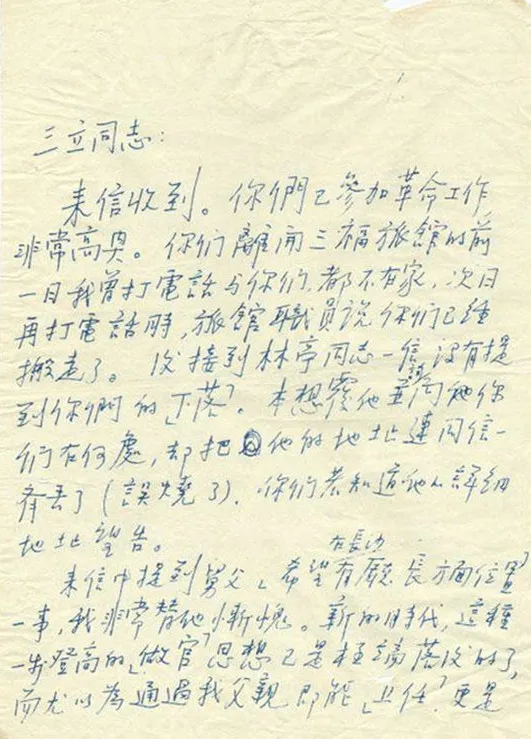 三立同志：
来信收到。你們已參加革命工作
非常高兴。你们離開三福旅館的前
一日我曾打電話与你们，都不在家，次日
再打電話時，旅館職員説你们已經
搬走了。後接到林亭同志一信，没有提
到你們的「下落」。本想覆他並請问他你
们在何處，却把他的地址連同信一
齊丢了（誤燒了）。你们若知道他的詳細
地址望告。
来信中提到舅父「希望在長沙有廳長方面位置」
一事，我非常替他慚愧。新的時代，這種
一步登高的「做官」思想已是極端落後的了，
而尤以為通過我父親即能「上任」，更是